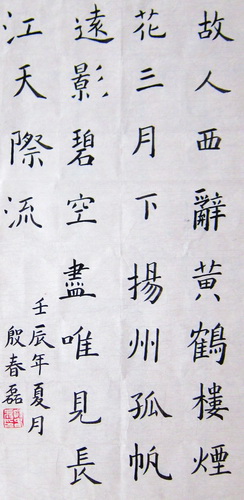 故人西辭黃鶴樓煙
花三月下揚州孤帆
遠影碧空盡唯見長
江天際流
壬辰年夏月
殷春磊